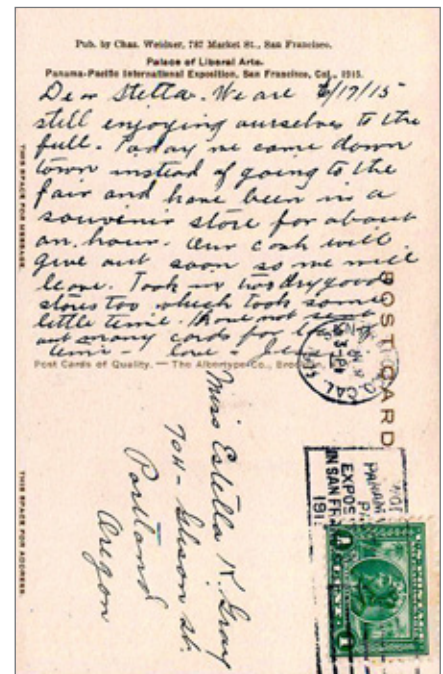 Pub. by Chas. Weidner, 787 Market St., San Francisco.
Palace of Liberal Arts.
Panama-Pacific International Exposition, San Francisco, Cal., 1915.
Dear Stella. We are 6/17/15
still enjoying ourselves to the
full. Today we came down
town instead of going to the
fair and have been in a
souvenir store for about
an hour. Our cash will
give out soon so we will
leave. Took in two dry good
stores too which took some
little time. Have not sent
out many cards for lack of
time - love -
Post Cards of Quality. — The Albertype Co., Brooklyn
POST CARD
THIS SPACE FOR MESSAGE.
THIS SPACE FOR ADDRESS.
CAL.
Miss Estella K. Gray
704 - Glisan st.
Portland
Oregon
PANAMA
EXPOS
IN SAN FR
191
1